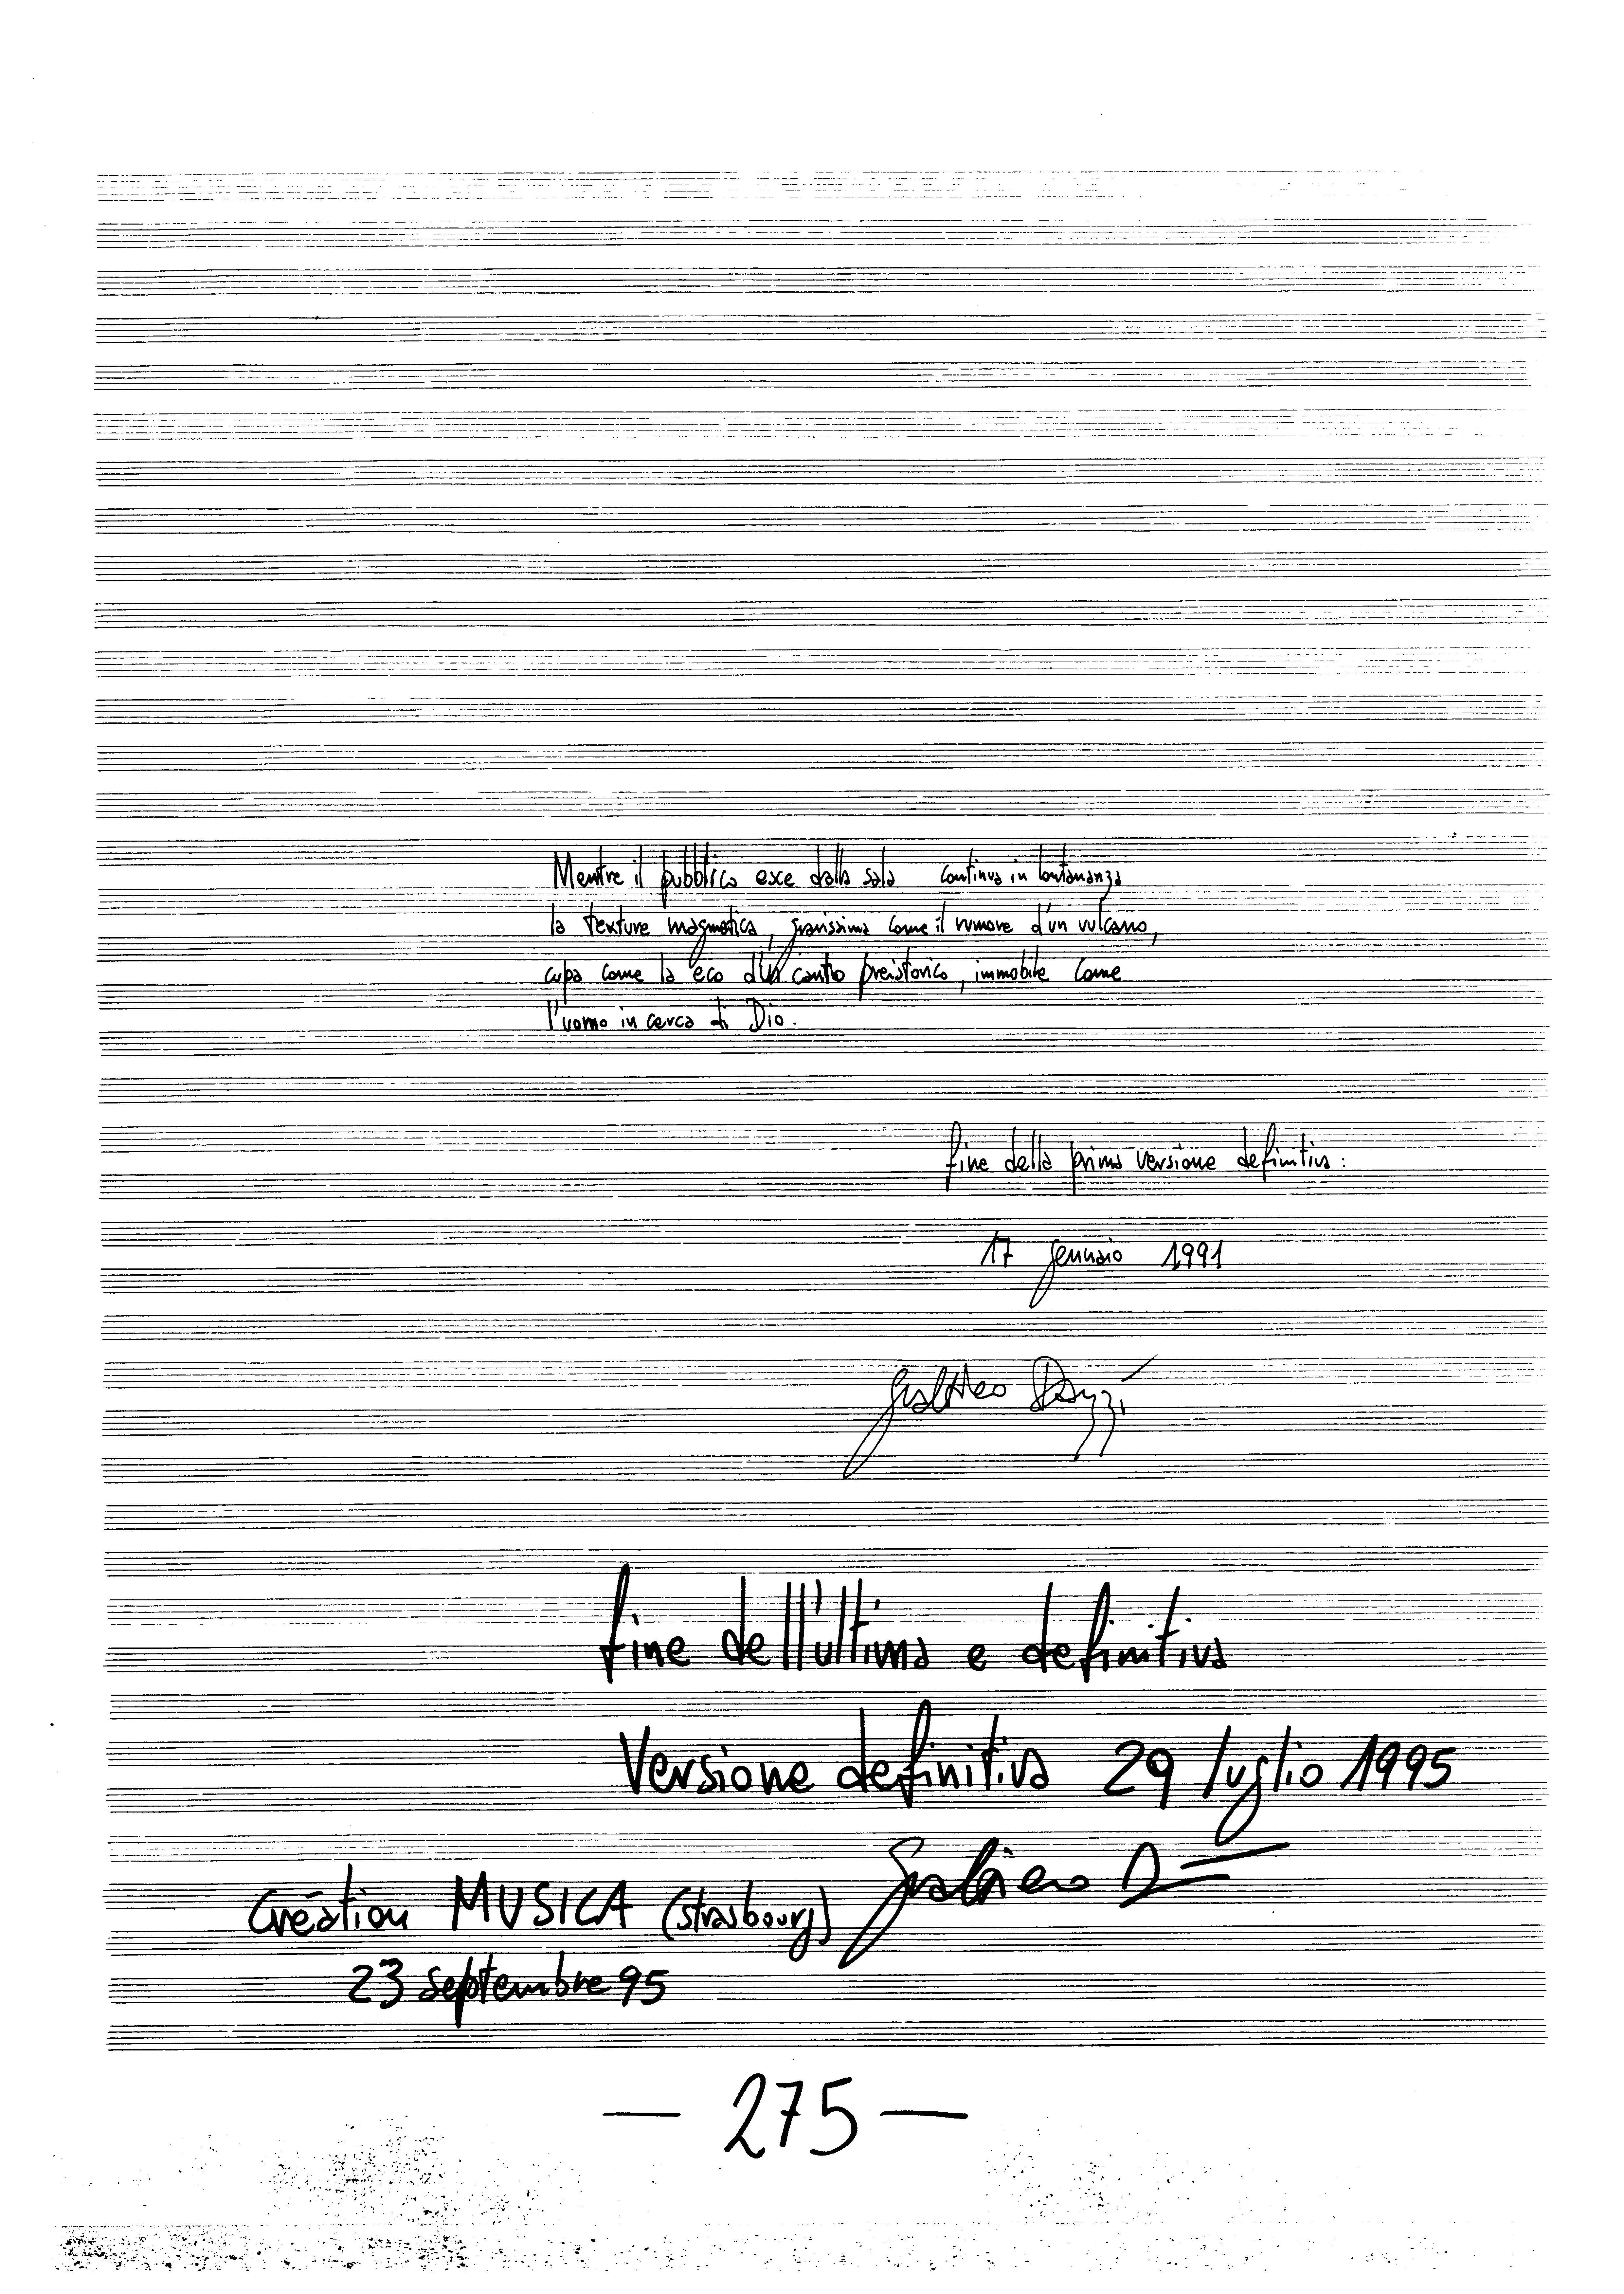 Mentre il pubblico esce dalla sala continua in lontananza
la texture magmatica, gravissima come il rumore d'un vulcano,
cupa come la eco d'un canto preistorico, immobile come
l'uomo in cerca di Dio.
fine della prima versione definitiva:
17 gennaio 1991
Gualtiero Dazzi
fine dell'ultima e definitiva
Versione definitiva 29 luglio 1995
Gualtiero D
Création MUSICA (Strasbourg)
23 septembre 95
— 275 —